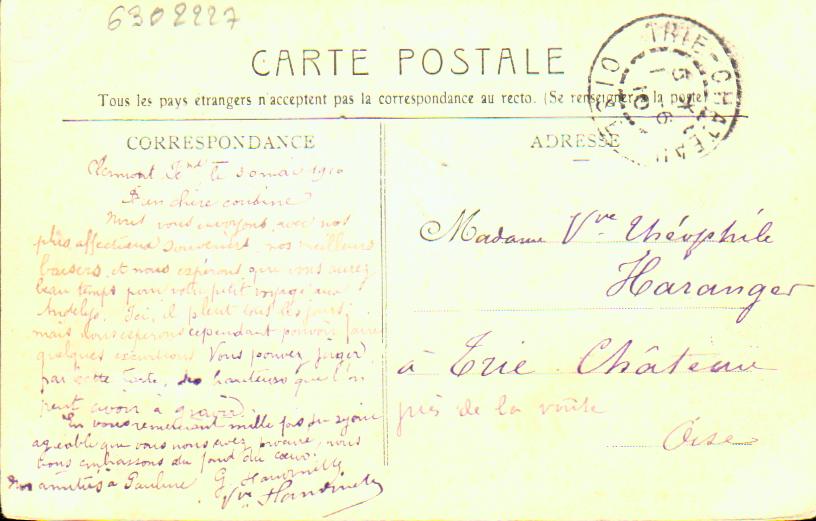 6302227
CARTE POSTALE
Tous les pays étrangers n'acceptent pas la correspondance au recto. (Se renseigner à la poste)
TRIE-CHATEAU
CORRESPONDANCE
ADRESSE
Clermont Fd le 30 mai 1910
Bien chère cousine
Nous vous envoyons avec nos
plus affectueux souvenirs, nos meilleurs
baisers, et nous espérons que vous aurez
beau temps pour votre petit voyage aux
Andelys. Ici, il pleut tous les jours,
mais nous espérons cependant pouvoir faire
quelques excursions. Vous pouvez juger,
par cette carte, des hauteurs que l'on
peut avoir à gravir.
En vous remerciant mille fois du séjour
agréable que vous nous avez procuré, nous
vous embrassons du fond du cœur.
Nos amitiés à Pauline G.
Vve
Madame Vve Théophile
Haranger
à Trie-Château
près de la voûte
Oise